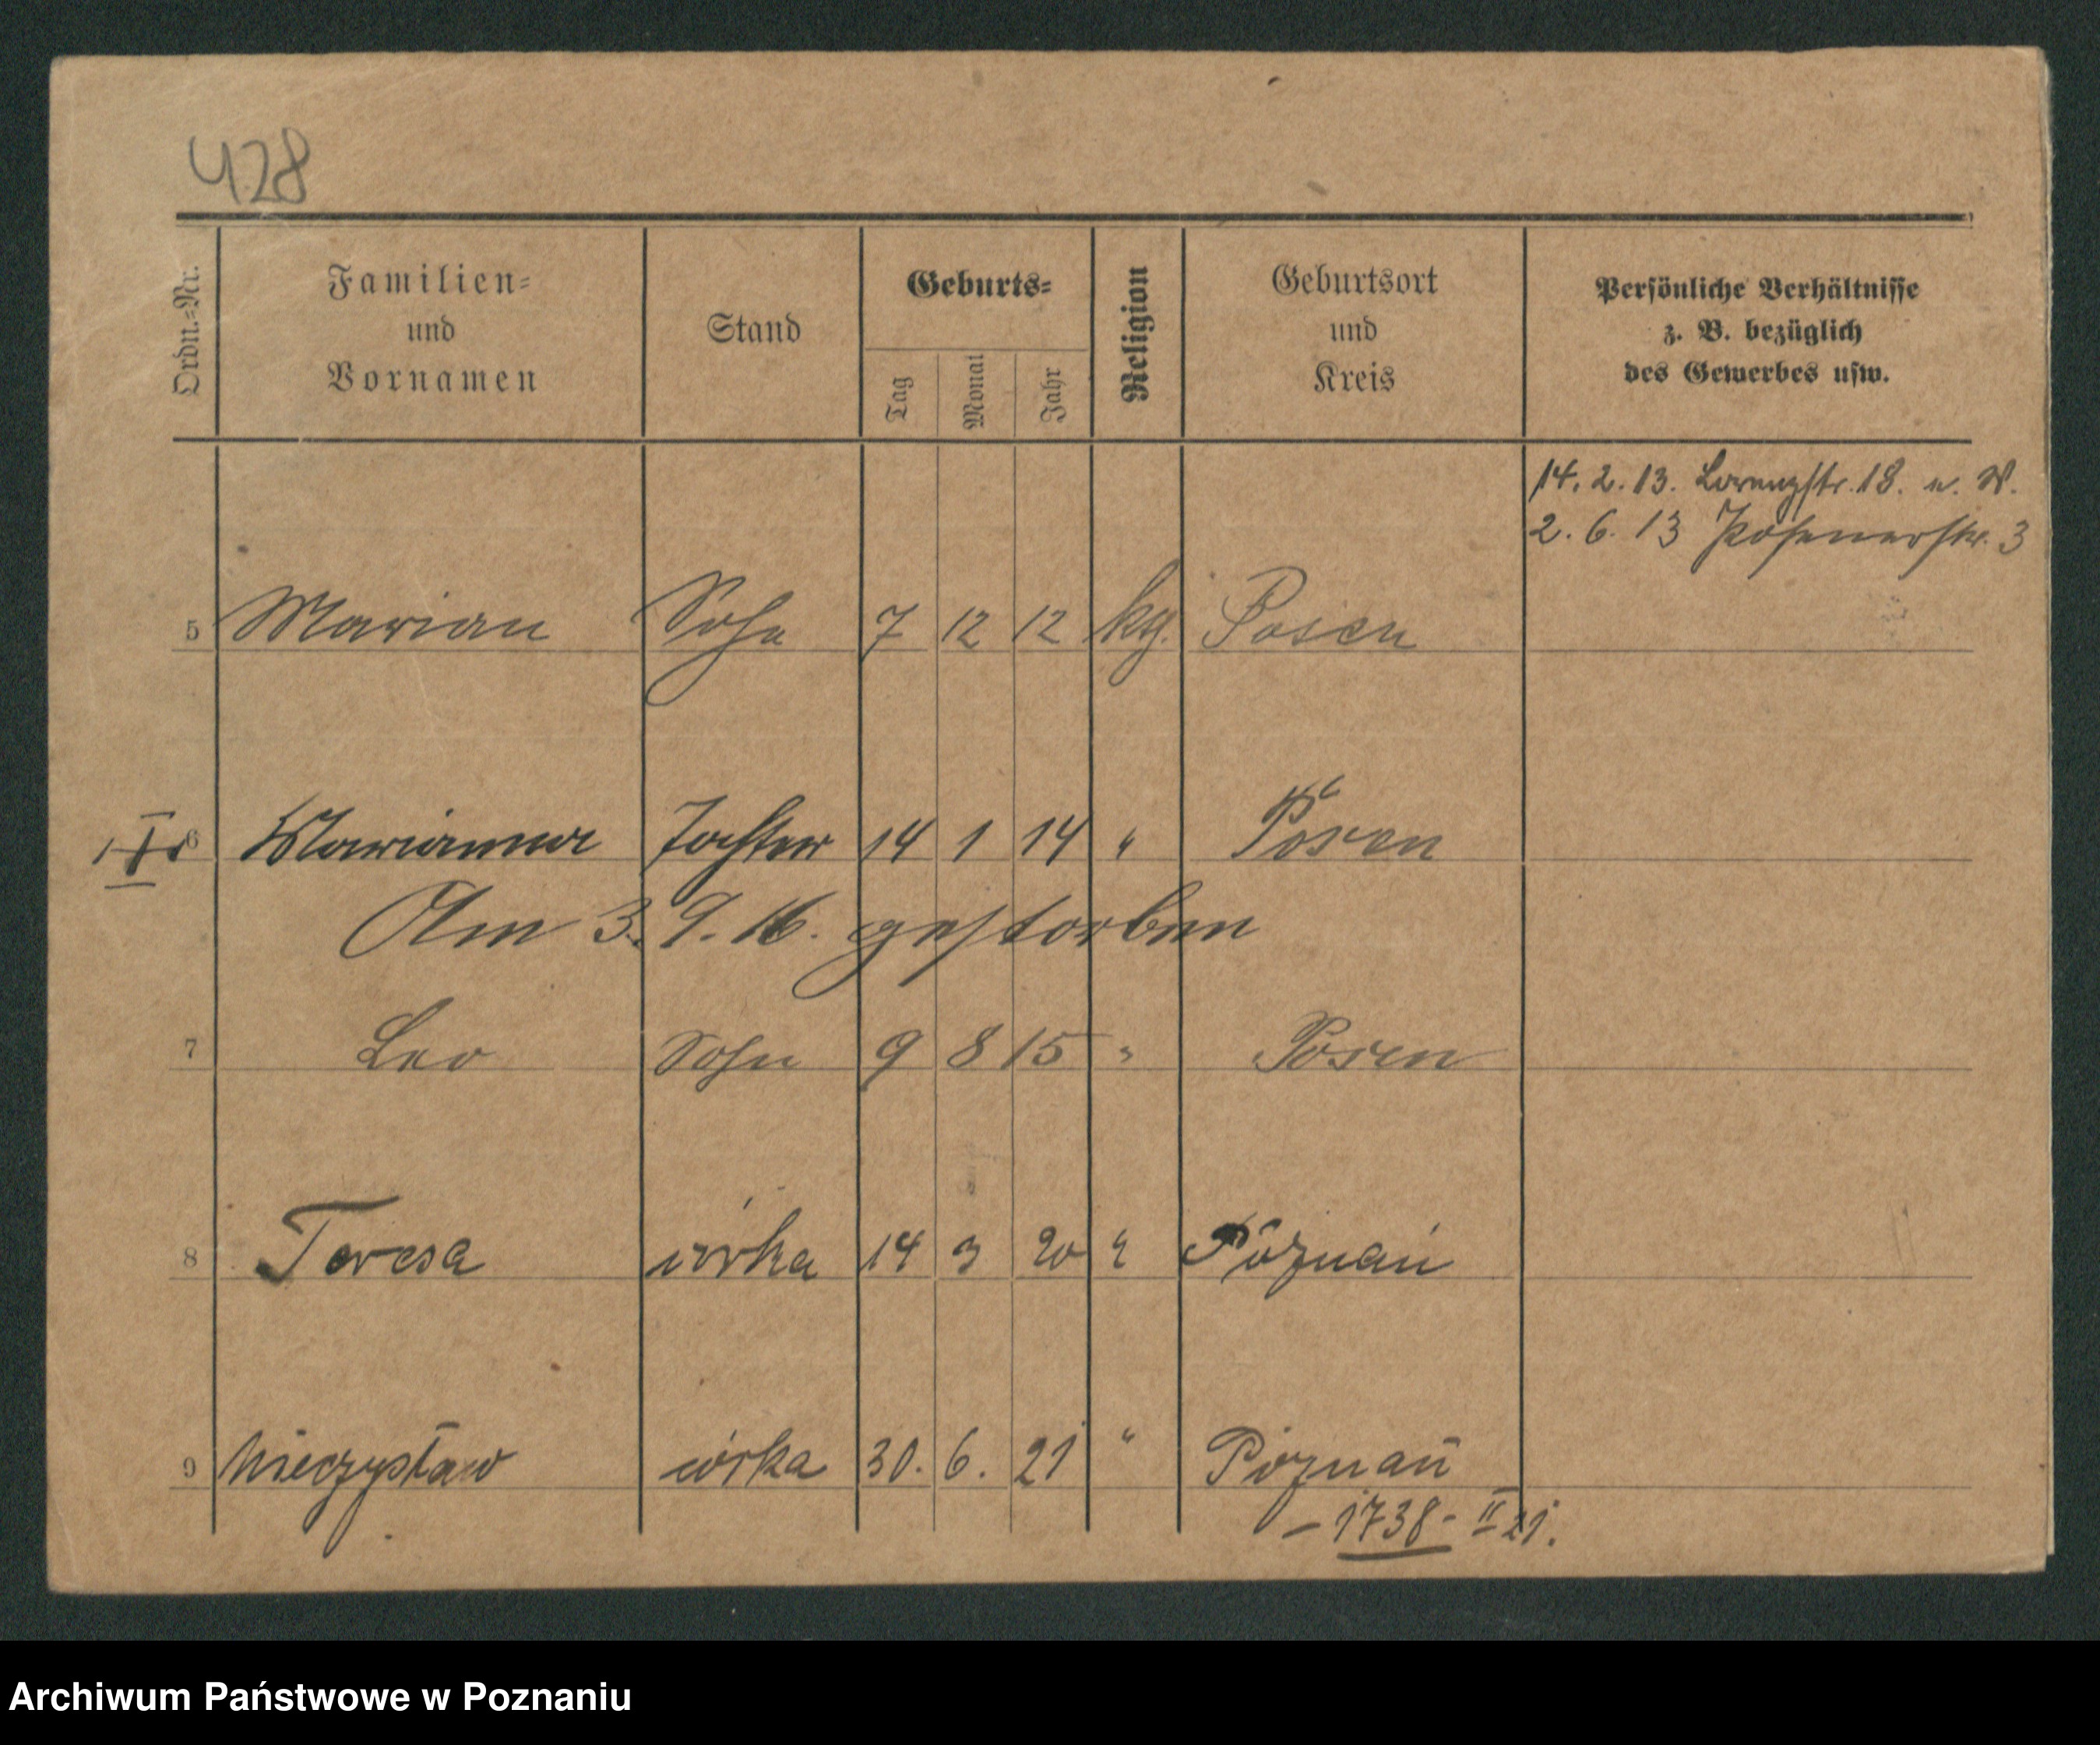 428
Ordn.-Nr. Familien- und Vornamen Stand Geburts- Tag Monat Jahr Religion Geburtsort und Kreis Persönliche Verhältnisse z. B. bezüglich des Gewerbes usw.
14. 2. 13. Lorenzstr. 18. u. W.
2. 6. 13 Posenerstr. 3
5 Marian Sohn 7 12 12 kg. Posen
6 Marianna Tochter 14 1 14 " Posen
Am 3. 9. 16. gestorben
7 Leo Sohn 9 8 15 " Posen
8 Teresa córka 14 3 20 " Poznań
9 Mieczysław córka 30. 6. 21 " Poznań
– 1738 - II 21.
Archiwum Państwowe w Poznaniu